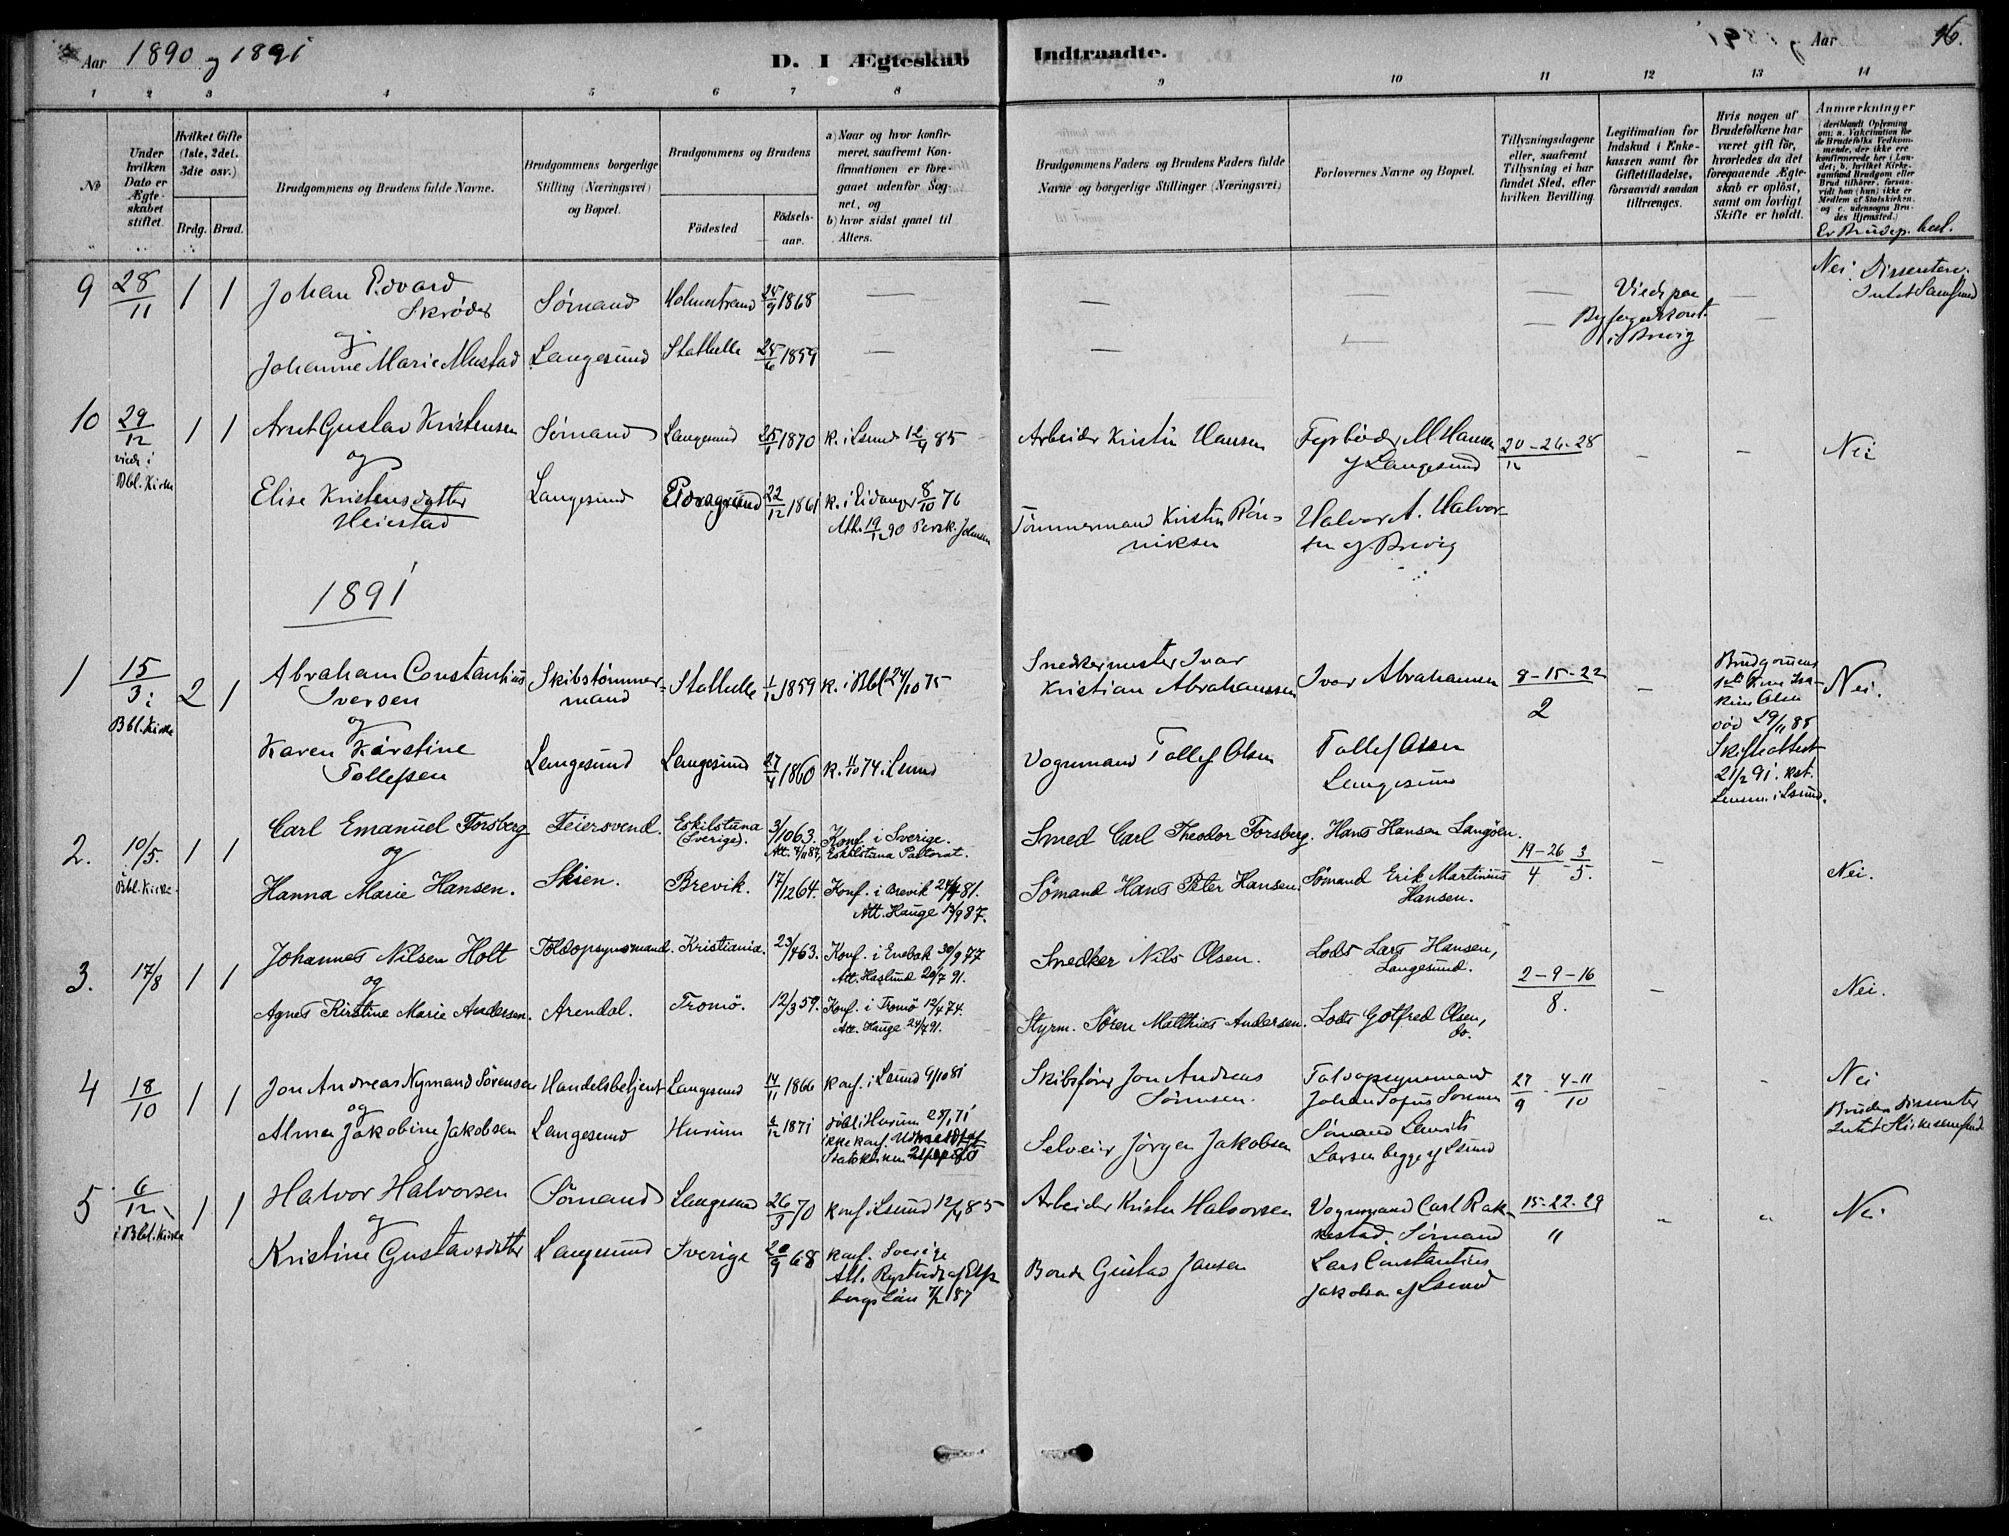 Aar 1890 og 1891
D. I Ægteskab Indtraadte.
Aar 16.
1 2 3 4 5 6 7 8 9 10 11 12 13 14
No
Under hvilken Dato er Ægteskabet stiftet.
Hvilket Gifte (1ste, 2det, 3die osv.)
Brdg. Brud.
Brudgommens og Brudens fulde Navne.
Brudgommens borgerlige Stilling (Næringsvei) og Bopæl.
Brudgommens og Brudens
Fødested
Fødselsaar.
a) Naar og hvor konfirmeret, saafremt Konfirmationen er foregaaet udenfor Sognet, og
b) hvor sidst gaaet til Alters.
Brudgommens Faders og Brudens Faders fulde Navne og borgerlige Stillinger (Næringsvei)
Forlovernes Navne og Bopæl.
Tillysningsdagene eller, saafremt Tillysning ei har fundet Sted, efter hvilken Bevilling.
Legitimation for Indskud i Enkekassen samt for Giftetilladelse, forsaavidt saadan tiltrænges.
Hvis nogen af Brudefolkene har været gift før, hvorledes da det foregaaende Ægteskab er opløst, samt om lovligt Skifte er holdt.
Anmærkninger (deriblandt Oplysning om: a. Vakcination for de Brudefolks Vedkommende, der ikke ere konfirmerede her i Landet; b. hvilket Kirkesamfund Brudgom eller Brud tilhører, forsaavidt han (hun) ikke er Medlem af Statskirken, og c. udensogns Brudes Hjemsted.)
Er Brudep. besl.
9 28/11 1 1 Johan Edvard Skrøder Sømand Holmestrand 25/9 1868 — — — — Viedt paa Byfogedkont. i Brevig — Nei. Dissentere. Intet Samfund
og
Johanne Marie Mustad Langesund Stathelle 25/6 1859 — — —
10 29/12 viede i Bbl. Kirke 1 1 Arnt Gustav Kristensen Sømand Langesund 25/1 1870 K. i Lsund 12/9 85 Arbeider Kristen Hansen Fyrbøder M Hansen af Langesund 20-26-28/12 – – Nei
og
Elise Kristensdatter Heiestad Langesund Porsgrund 22/12 1861 K. i Eidanger 8/10 76 Att. 19/12 90 Tømmermand Kristen Røniksen Halvor A. Halvorsen af Brevig
1891
1 15/3 i Bbl. Kirke 2 1 Abraham Constantius Iversen Skibstømmermand Stathelle 1/1 1859 K. i Bbl 24/10 75 Snedkermester Ivar Kristian Abrahamsen Ivar Abrahamsen 8-15-22/2 – Nei.
Brudgomens
Olsen
død 29/11 88
Skifteattest
21/2 91.
Lensm. i Lsund.
og
Karen Kirstine Tollefsen Langesund Langesund 27/4 1860 K. 11/10 74 i Lsund Vognmand Tollef Olsen Tollef Olsen Langesund
2. 10/5. Bbl. Kirke. 1 1 Carl Emanuel Forsberg Feiersvend. Eskilstuna (Sverige). 3/10 63. Konf. i Sverige. Eskilstuna Pastorat. Smed Carl Theodor Forsberg. Hans Hansen Langöen. 19-26/4 - 3/5. – Nei.
og
Hanna Marie Hansen. Skien. Brevik. 17/12 64. Konf. i Brevik 24/4 81. Att. Hauge 13/9 87. Sömand Hans Peter Hansen. Sömand Erik Martinius Hansen.
3. 17/8 1 1 Johannes Nilsen Holt Toldopsynsmand. Kristiania. 23/4 63. Konf. i Enebak 30/9 77 Att. Haslund 20/7 91. Snedker Nils Olsen. Lods Lars Hansen, Langesund. 2-9-16/8. – Nei.
og
Agnes Kirstine Marie Andersen. Arendal. Tromö. 12/3 59. Konf. i Tromö 12/4 74. Att. Hauge 24/7 91. Styrm. Sören Matthias Andersen. Lods Gotfred Olsen, do.
4 18/10 1 1 Jon Andreas Nymand Sørensen Handelsbetjent Langesund 14/11 1866 Konf. i Lsund 9/10 81 Skibsfører Jon Andreas Sørensen. Toldopsynsmand Johan Tofus Sørensen 27/9 - 4-11/10 – – Nei
og
Alma Jakobine Jakobsen Langesund Hurum 6/12 1871 døbt i Hurum 25/1 71 ikke konf. Udmeldt af Statskirken Selveier Jørgen Jakobsen Sømand Laurits Larsen begge af Lsund Bruden Dissenter Intet Kirkesamfund
5 6/12 i Bbl. Kirke 1 1 Halvor Halvorsen Sømand Langesund 26/3 70 Konf. i Lsund 12/4 85 Arbeider Kristen Halvorsen Vognmand Carl Rakkestad. Sømand 15-22-29/11 " " Nei
og
Kristine Gustavsdatter Langesund Sverige 20/9 68 Konf. Sverige Att. Bonde Gustav Jansen Lars Constantius Jakobsen af Lsund